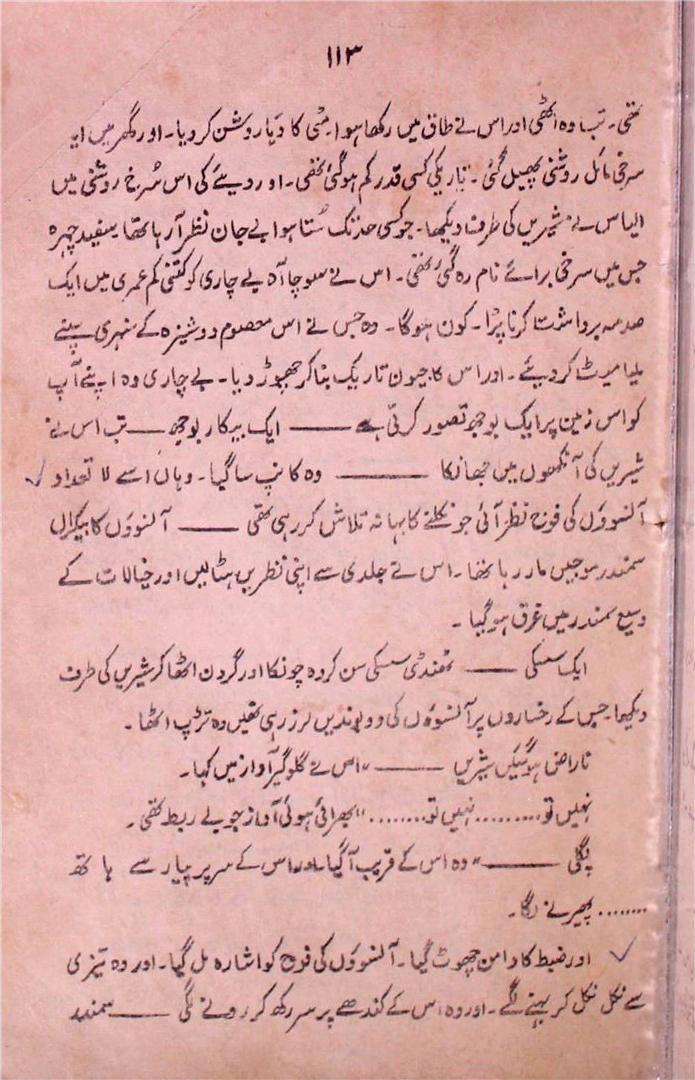 ۱۱۳
تھی۔ تب وہ اٹھی اور اس نے طاق میں رکھا ہوا مٹی کا دِیا روشن کر دیا۔ اور گھر میں ایک
سرخی مائل روشنی پھیل گئی۔ تاریکی کسی قدر کم ہو گئی تھی۔ اور دیئے کی اس سُرخ روشنی میں
الیاس نے شیریں کی طرف دیکھا۔ جو کسی حد تک سُتا ہوا بے جان نظر آ رہا تھا۔ سفید چہرہ
جس میں سرخی برائے نام رہ گئی تھی۔ اس نے سوچا آہ بے چاری کو کتنی کم عمری میں ایک
صدمہ برداشت کرنا پڑا۔ کون ہوگا۔ وہ جس نے اس معصوم دوشیزہ کے سنہری سپنے
ملیامیٹ کر دیئے۔ اور اس کا جیون تاریک بنا کر چھوڑ دیا۔ بے چاری وہ اپنے آپ
کو اس زمین پر ایک بوجھ تصور کرتی ہے —— ایک بیکار بوجھ —— تب اس نے
شیریں کی آنکھوں میں جھانکا —— وہ کانپ سا گیا۔ وہاں اسے لا تعداد
آنسوؤں کی فوج نظر آئی جو نکلنے کا بہانہ تلاش کر رہی تھی —— آنسوؤں کا بیکراں
سمندر موجیں مار رہا تھا۔ اس نے جلدی سے اپنی نظریں ہٹالیں اور خیالات کے
وسیع سمندر میں غرق ہو گیا۔
ایک سسکی —— ٹھنڈی سسکی سن کر وہ چونکا اور گردن اٹھا کر شیریں کی طرف
دیکھا۔ جس کے رخساروں پر آنسوؤں کی دو بوندیں لرز رہی تھیں وہ تڑپ اٹھا۔
ناراض ہو گئیں شیریں ——" اس نے گلوگیر آواز میں کہا۔
نہیں تو......... نہیں تو........" بھرائی ہوئی آواز جو بے ربط تھی۔
پگلی ——" وہ اس کے قریب آ گیا۔ اور اس کے سر پر پیار سے ہاتھ
........ پھیرنے لگا۔
اور ضبط کا دامن چھوٹ گیا۔ آنسوؤں کی فوج کو اشارہ مل گیا۔ اور وہ تیزی
سے نکل نکل کر بہنے لگے۔ اور وہ اس کے کندھے پر سر رکھ کر رونے لگی —— سمندر